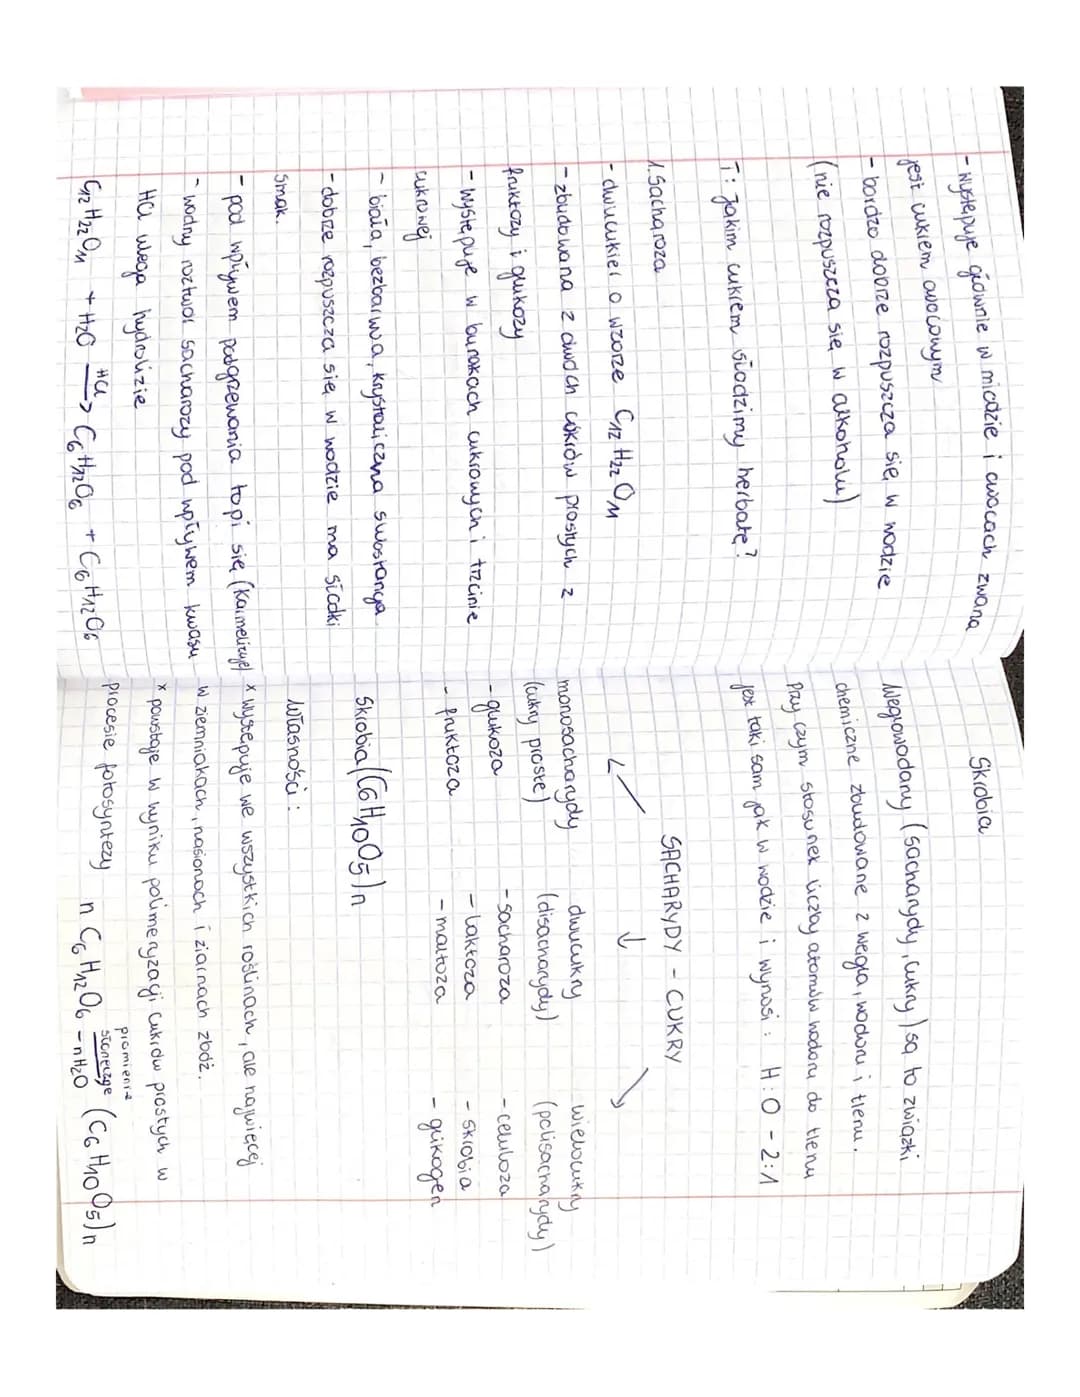 - występuje głównie w miodzie i owocach zwana
jest cukiem owocowym
- bardzo dobrze rozpuszcza się w wodzie
(nie rozpuszcza się w alkoholu)
T: Jakim cukrem słodzimy herbatę?
1. Sacharoza
- dwucukier o wzorze C12 H22 O11
- zbudowana z dwóch cukrów prostych z
fruktozy i glukozy
- występuje w burakach cukrowych i trzcinie
cukrowej
- biała, bezbarwna, krystaliczna substancja
- dobrze rozpuszcza się w wodzie ma słodki
smak.
- pod wpływem podgrzewania topi się (karmelizuje)
- wodny roztwór sacharozy pod wpływem kwasu
HCl ulega hydrolizie
C12 H22 O11 + H2O HCl → C6H12O6 + C6H12O6
Skrobia
Węglowodany (sacharydy, cukry) są to związki
chemiczne zbudowane z węgla, wodoru i tlenu.
Przy czym stosunek liczby atomów wodoru do tlenu
jest taki sam jak w wodzie i wynosi: H:O - 2:1
SACHARYDY - CUKRY
↙ ↓ ↘
monosacharydy dwucukry wielocukry
(cukry proste) (disacharydy) (polisacharydy)
- glukoza - sacharoza - celuloza
- fruktoza - laktoza - skrobia
- maltoza - glikogen
Skrobia (C6H10O5)n
Własności:
x występuje we wszystkich roślinach, ale najwięcej
w ziemniakach, nasionach i ziarnach zbóż.
x powstaje w wyniku polimeryzacji cukrów prostych w
procesie fotosyntezy n C6H12O6 promienie słoneczne -nH2O (C6H10O5)n